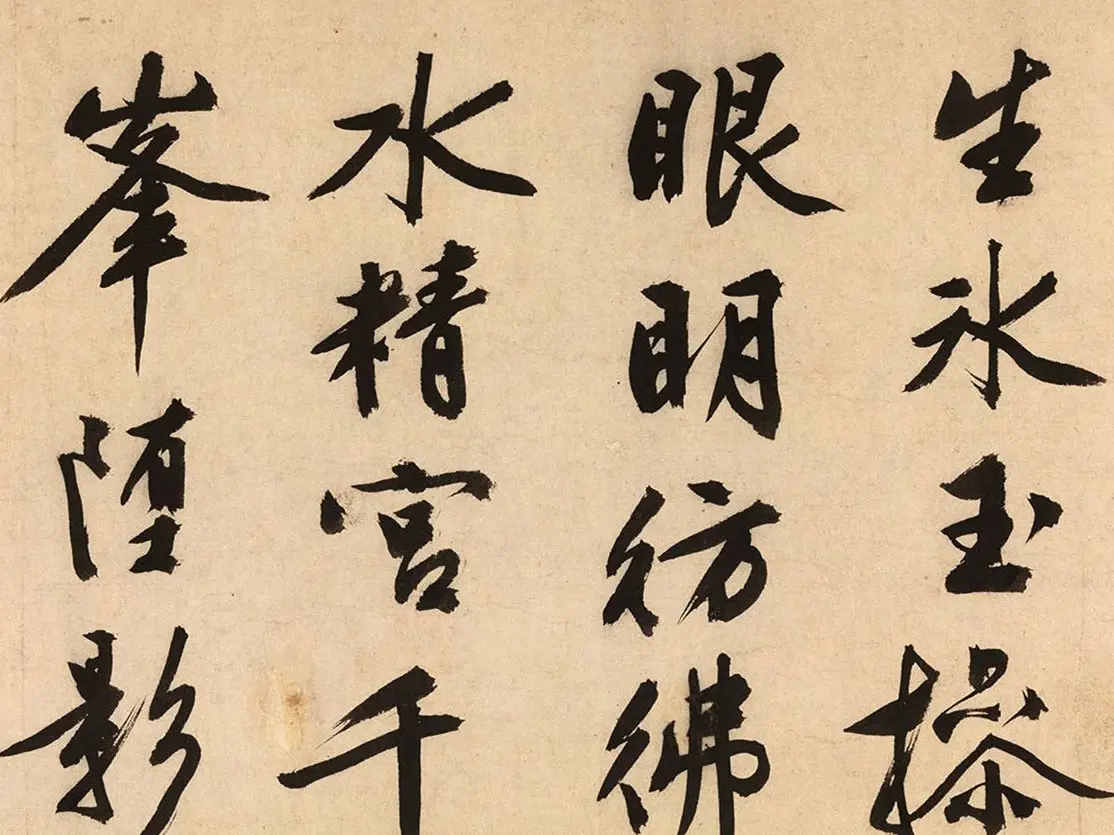 生氷玉摻
眼明彷彿
水精宮千
峯墮影